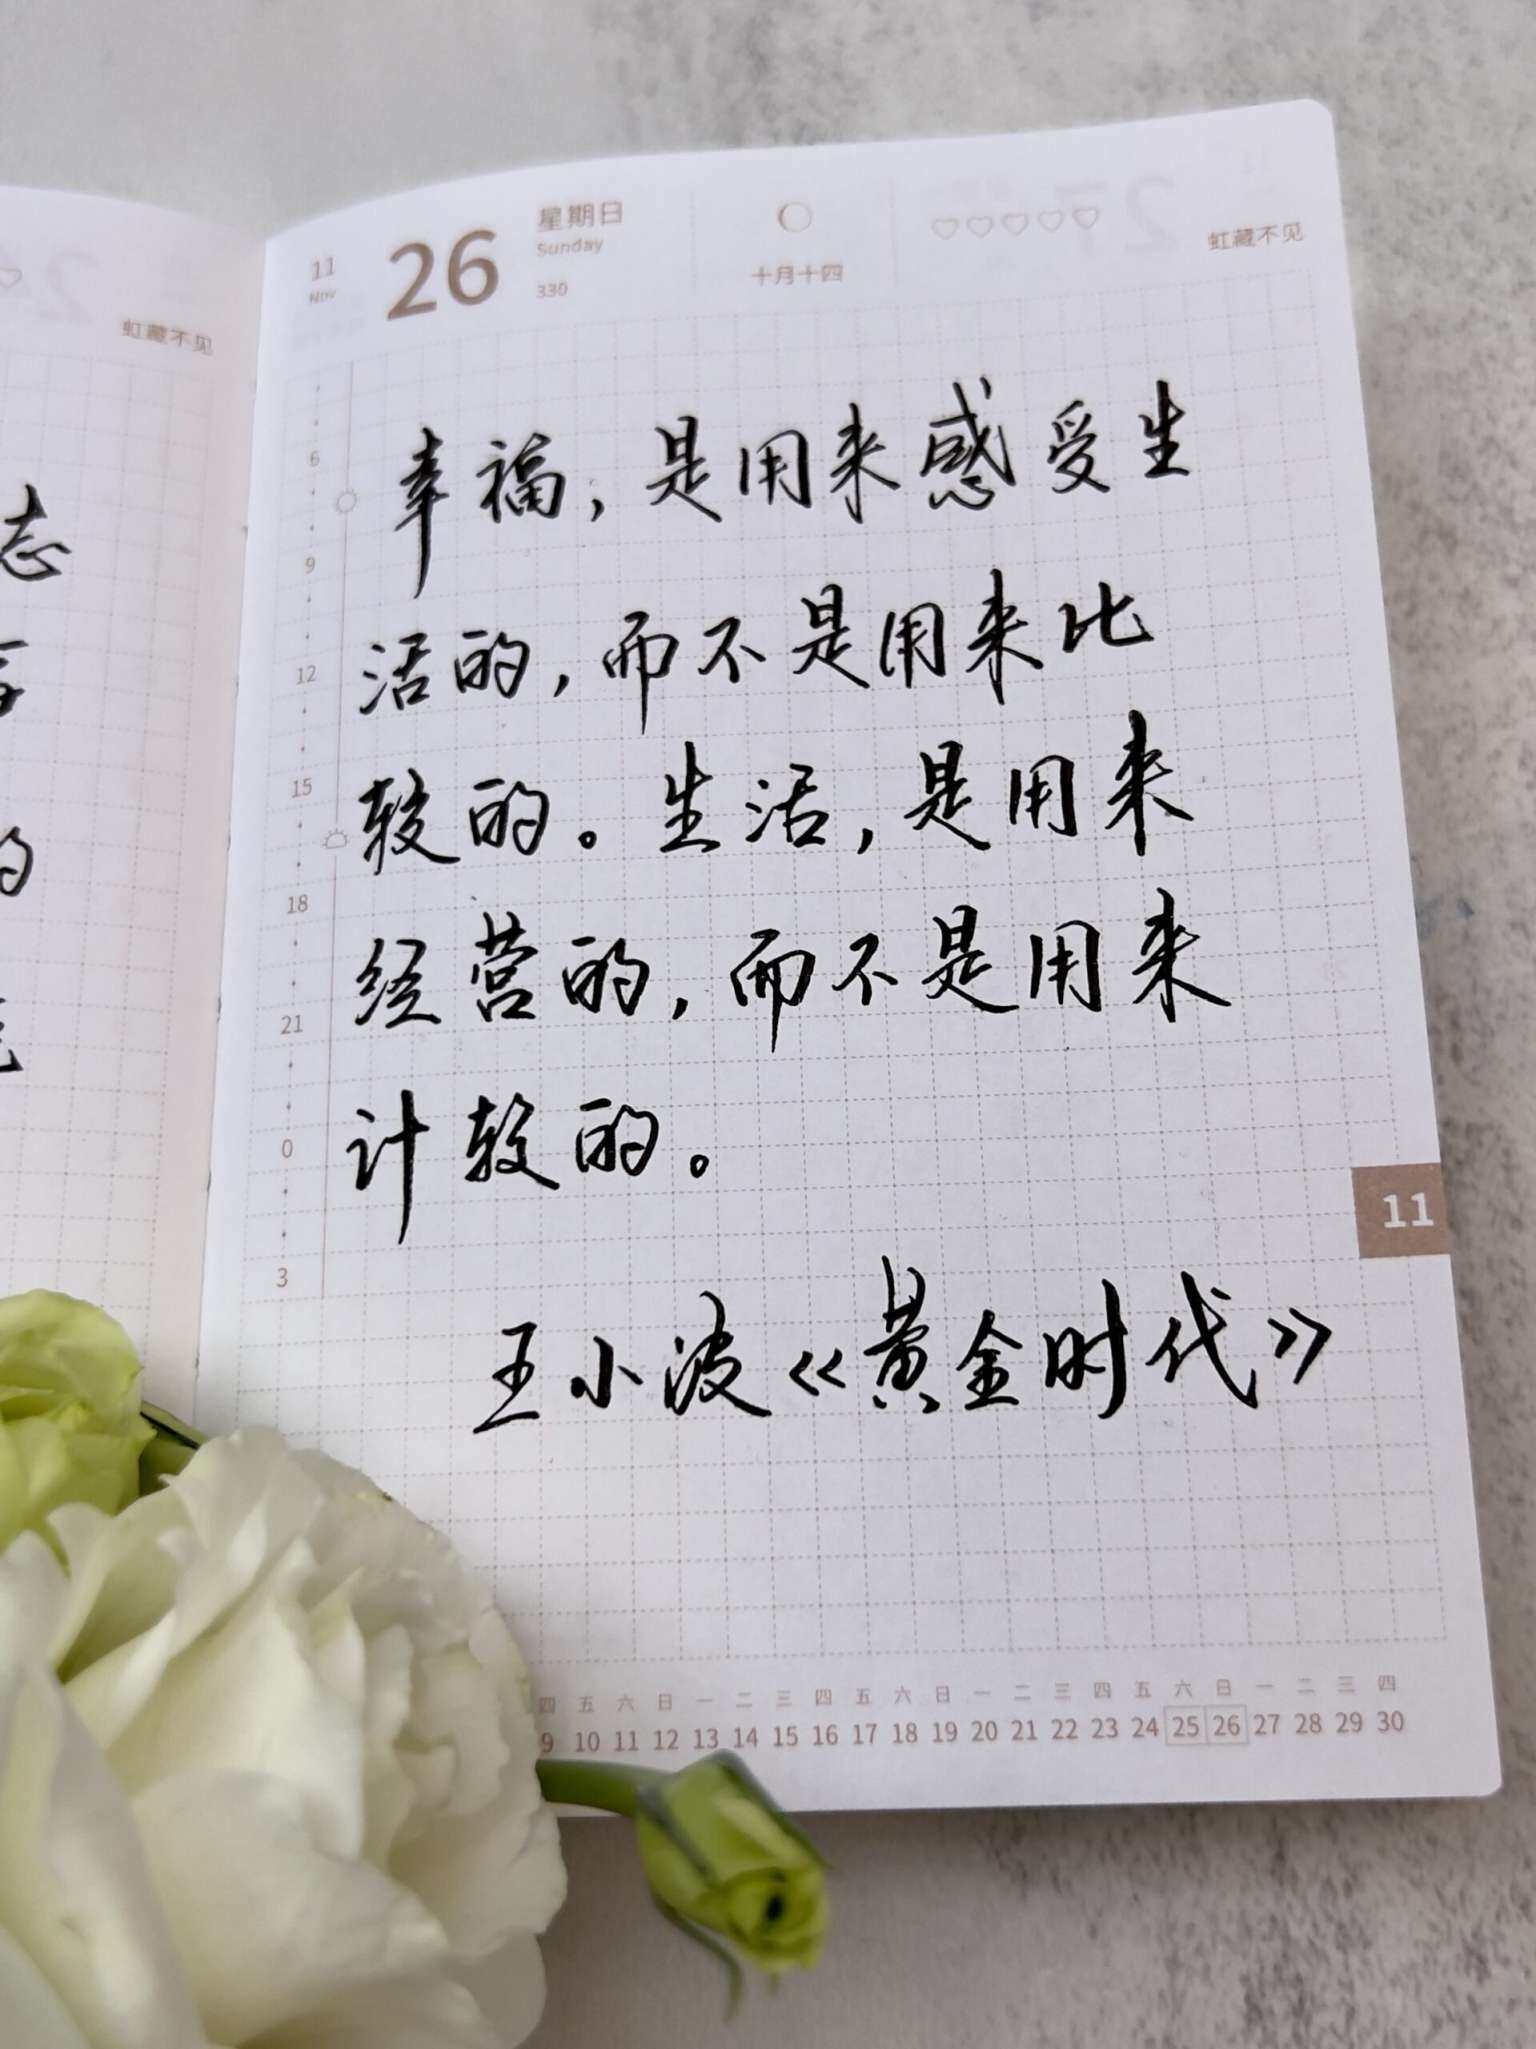 11
Nov
26
星期日
Sunday
330
十月十四
虹藏不见
虹藏不见
志
的
6
9
12
15
18
21
0
3
幸福，是用来感受生
活的，而不是用来比
较的。生活，是用来
经营的，而不是用来
计较的。
王小波《黄金时代》
11
四 五 六 日 一 二 三 四 五 六 日 一 二 三 四 五 六 日 一 二 三 四
9 10 11 12 13 14 15 16 17 18 19 20 21 22 23 24 25 26 27 28 29 30